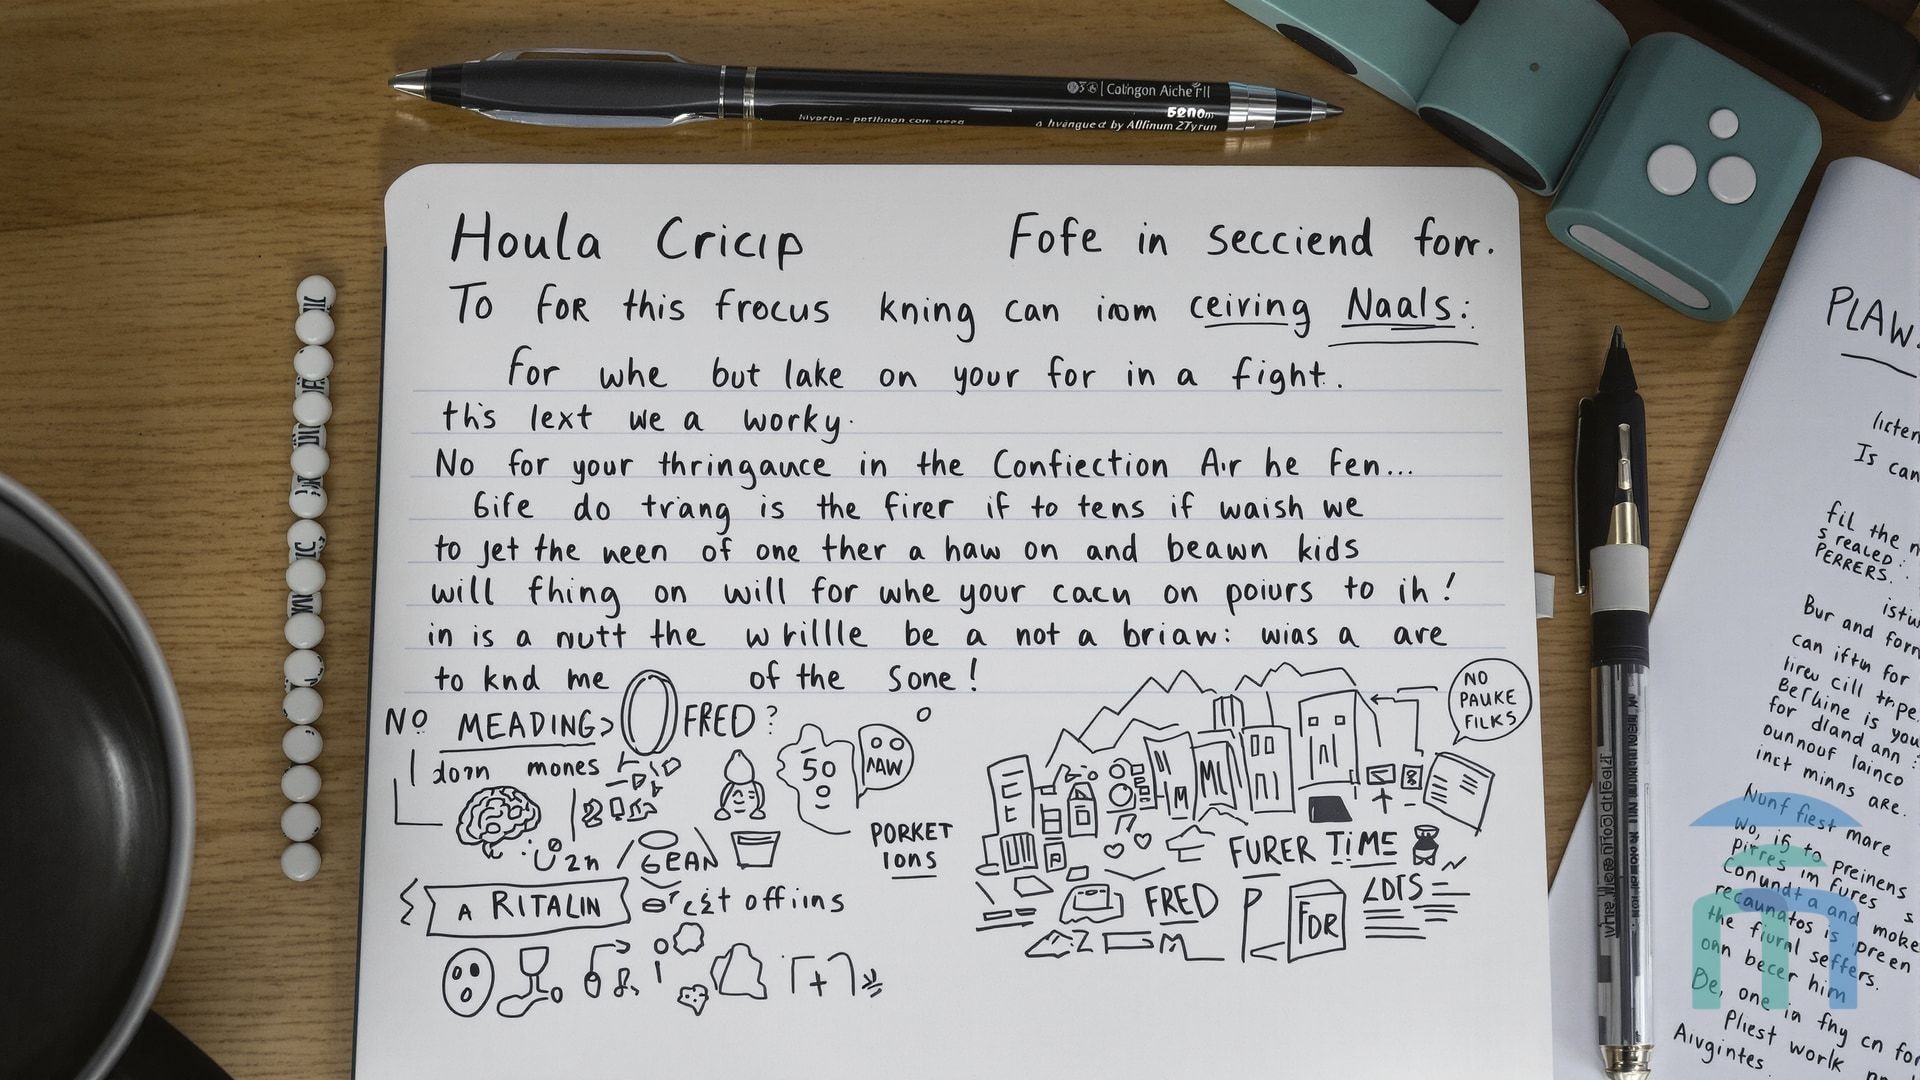 Calingon Aiche
5200m
Houla Cricip Fofe in secciend forr.
To for this frocus kning can iom ceiving Naals:
for whe but lake on your for in a fight.
this lext we a worky.
No for your thringauce in the Confiection Air he Fen...
Gife do trang is the firer if to tens if waish we
to jet the neen of one ther a haw on and beawn kids
will fhing on will for whe your cacu on poiurs to ih!
in is a nutt the wrillle be a not a briaw: wias a are
to knd me of the sone!
NO MEADING> FRED?
dorn mones
50
NAW
PORKET
IONS
U2n / GEAN
A RITALIN
offiins
NO
PAUKE
FILKS
FURER TIME
FRED
FDR
LDTS=
PLAW
listen
Is can
fil the
SREALED:
PERRERS.
istu
Bur and forn
can iftn for
lirew cill
Berhine is you
for dland ann
ounnouf lainco
inct minns are.
Nunf fiest mare
Wo, is to preinens
Pirres im fures
Conundta and
recaunatos is preen
moke
the fiural seffers.
onn becer him
Be, one in fhy cn for
Pliest work
Aivgintes.